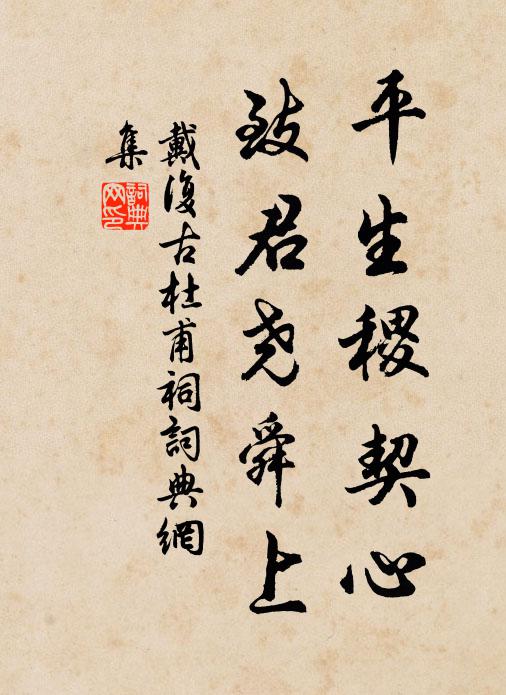 平生稷契心
致君尧舜上
戴復古杜甫祠詞典網
集
詞典
网印